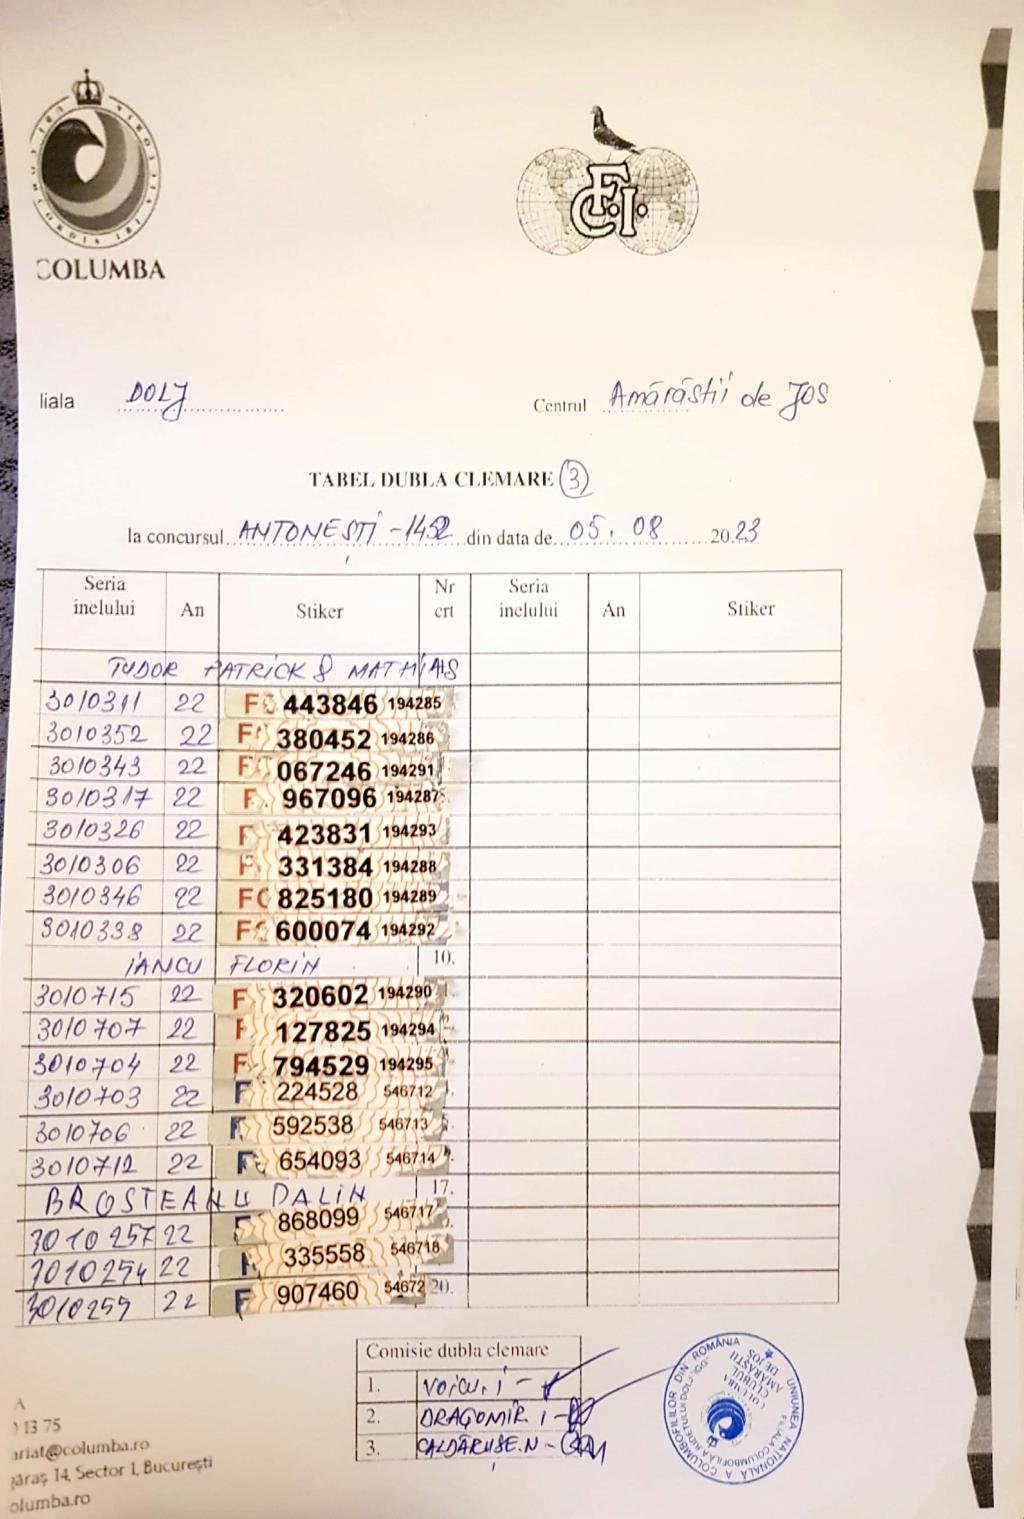 COLUMBA
F.C.I.
liala DOLJ Centrul Amărăștii de JOS
TABEL DUBLA CLEMARE 3
la concursul ANTONEȘTI - 1452 din data de 05.08 2023
Seria inelului An Stiker Nr crt Seria inelului An Stiker
TUDOR PATRICK & MATHIAS
3010311 22 F 443846 194285
3010352 22 F 380452 194286
3010343 22 F 067246 194291
3010317 22 F 967096 194287
3010326 22 F 423831 194293
3010306 22 F 331384 194288
3010346 22 FC 825180 194289
3010338 22 F 600074 194292
IANCU FLORIN 10.
3010715 22 F 320602 194290
3010707 22 F 127825 194294
3010704 22 F 794529 194295
3010703 22 F 224528 546712
3010706 22 F 592538 546713
3010712 22 F 654093 546714
BROSTEANU DALIN 17.
3010257 22 F 868099 546717
3010254 22 F 335558 546718
3010259 22 F 907460 54672 20.
Comisie dubla clemare
1. VOICU. I -
2. DRAGOMIR. I -
3. CALDĂRUSE. N -
UNIUNEA NAȚIONALĂ A COLUMBOFILILOR DIN ROMÂNIA
CLUBUL COLUMBA AMĂRĂȘTII DE JOS
A
) 13 75
ariat@columba.ro
găraș 14, Sector 1, București
olumba.ro